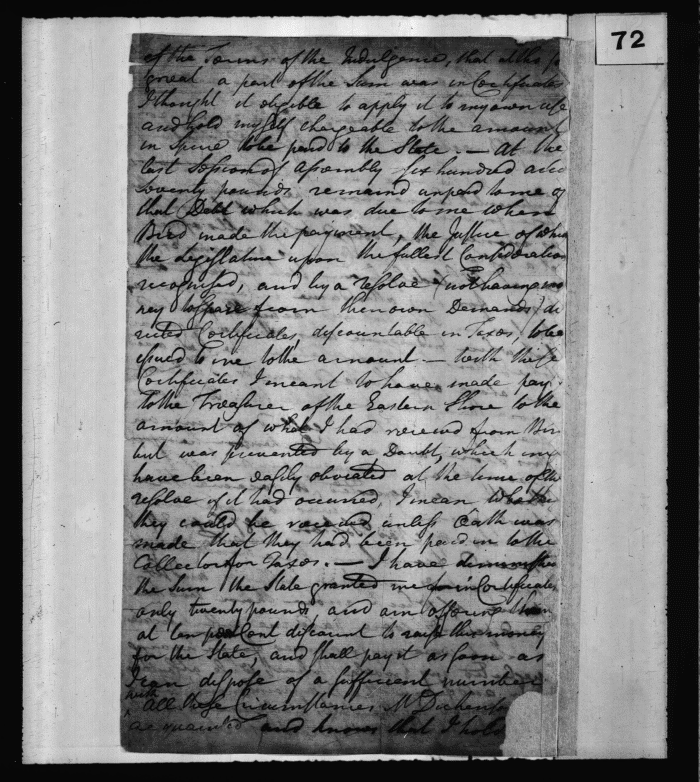 72
of the Terms of the Indulgence, that altho so
great a part of the Sum was in Certificates
I thought it eligible to apply it to my own use
and hold myself chargeable to the amount
in Specie to be paid to the State. — At the
last Session of Assembly six hundred and
seventy pounds remained unpaid to me of
that Debt which was due to me when
Bird made the payment, the Justice of which
the Legislature upon the fullest Consideration
recognised, and by a resolve (not having mo
ney to spare from their own Demands) di
rected Certificates, discountable in Taxes, to be
issued to me to the amount — with these
Certificates I meant to have made pay
to the Treasurer of the Eastern Shore to the
amount of what I had received from Bir
but was prevented by a Doubt, which my
have been easily obviated at the time of the
resolve if it had occurred, I mean whether
they could be received unless Oath was
made that they had been paid in to the
Collector for Taxes. — I have diminished
the Sum the State granted me in Certificates
only twenty pounds and am offering them
at ten per Cent discount to raise this money
for the State, and shall pay it as soon as
I can dispose of a sufficient number
with
All these Circumstances Mr Dickenson
acquainted and knows that I hold